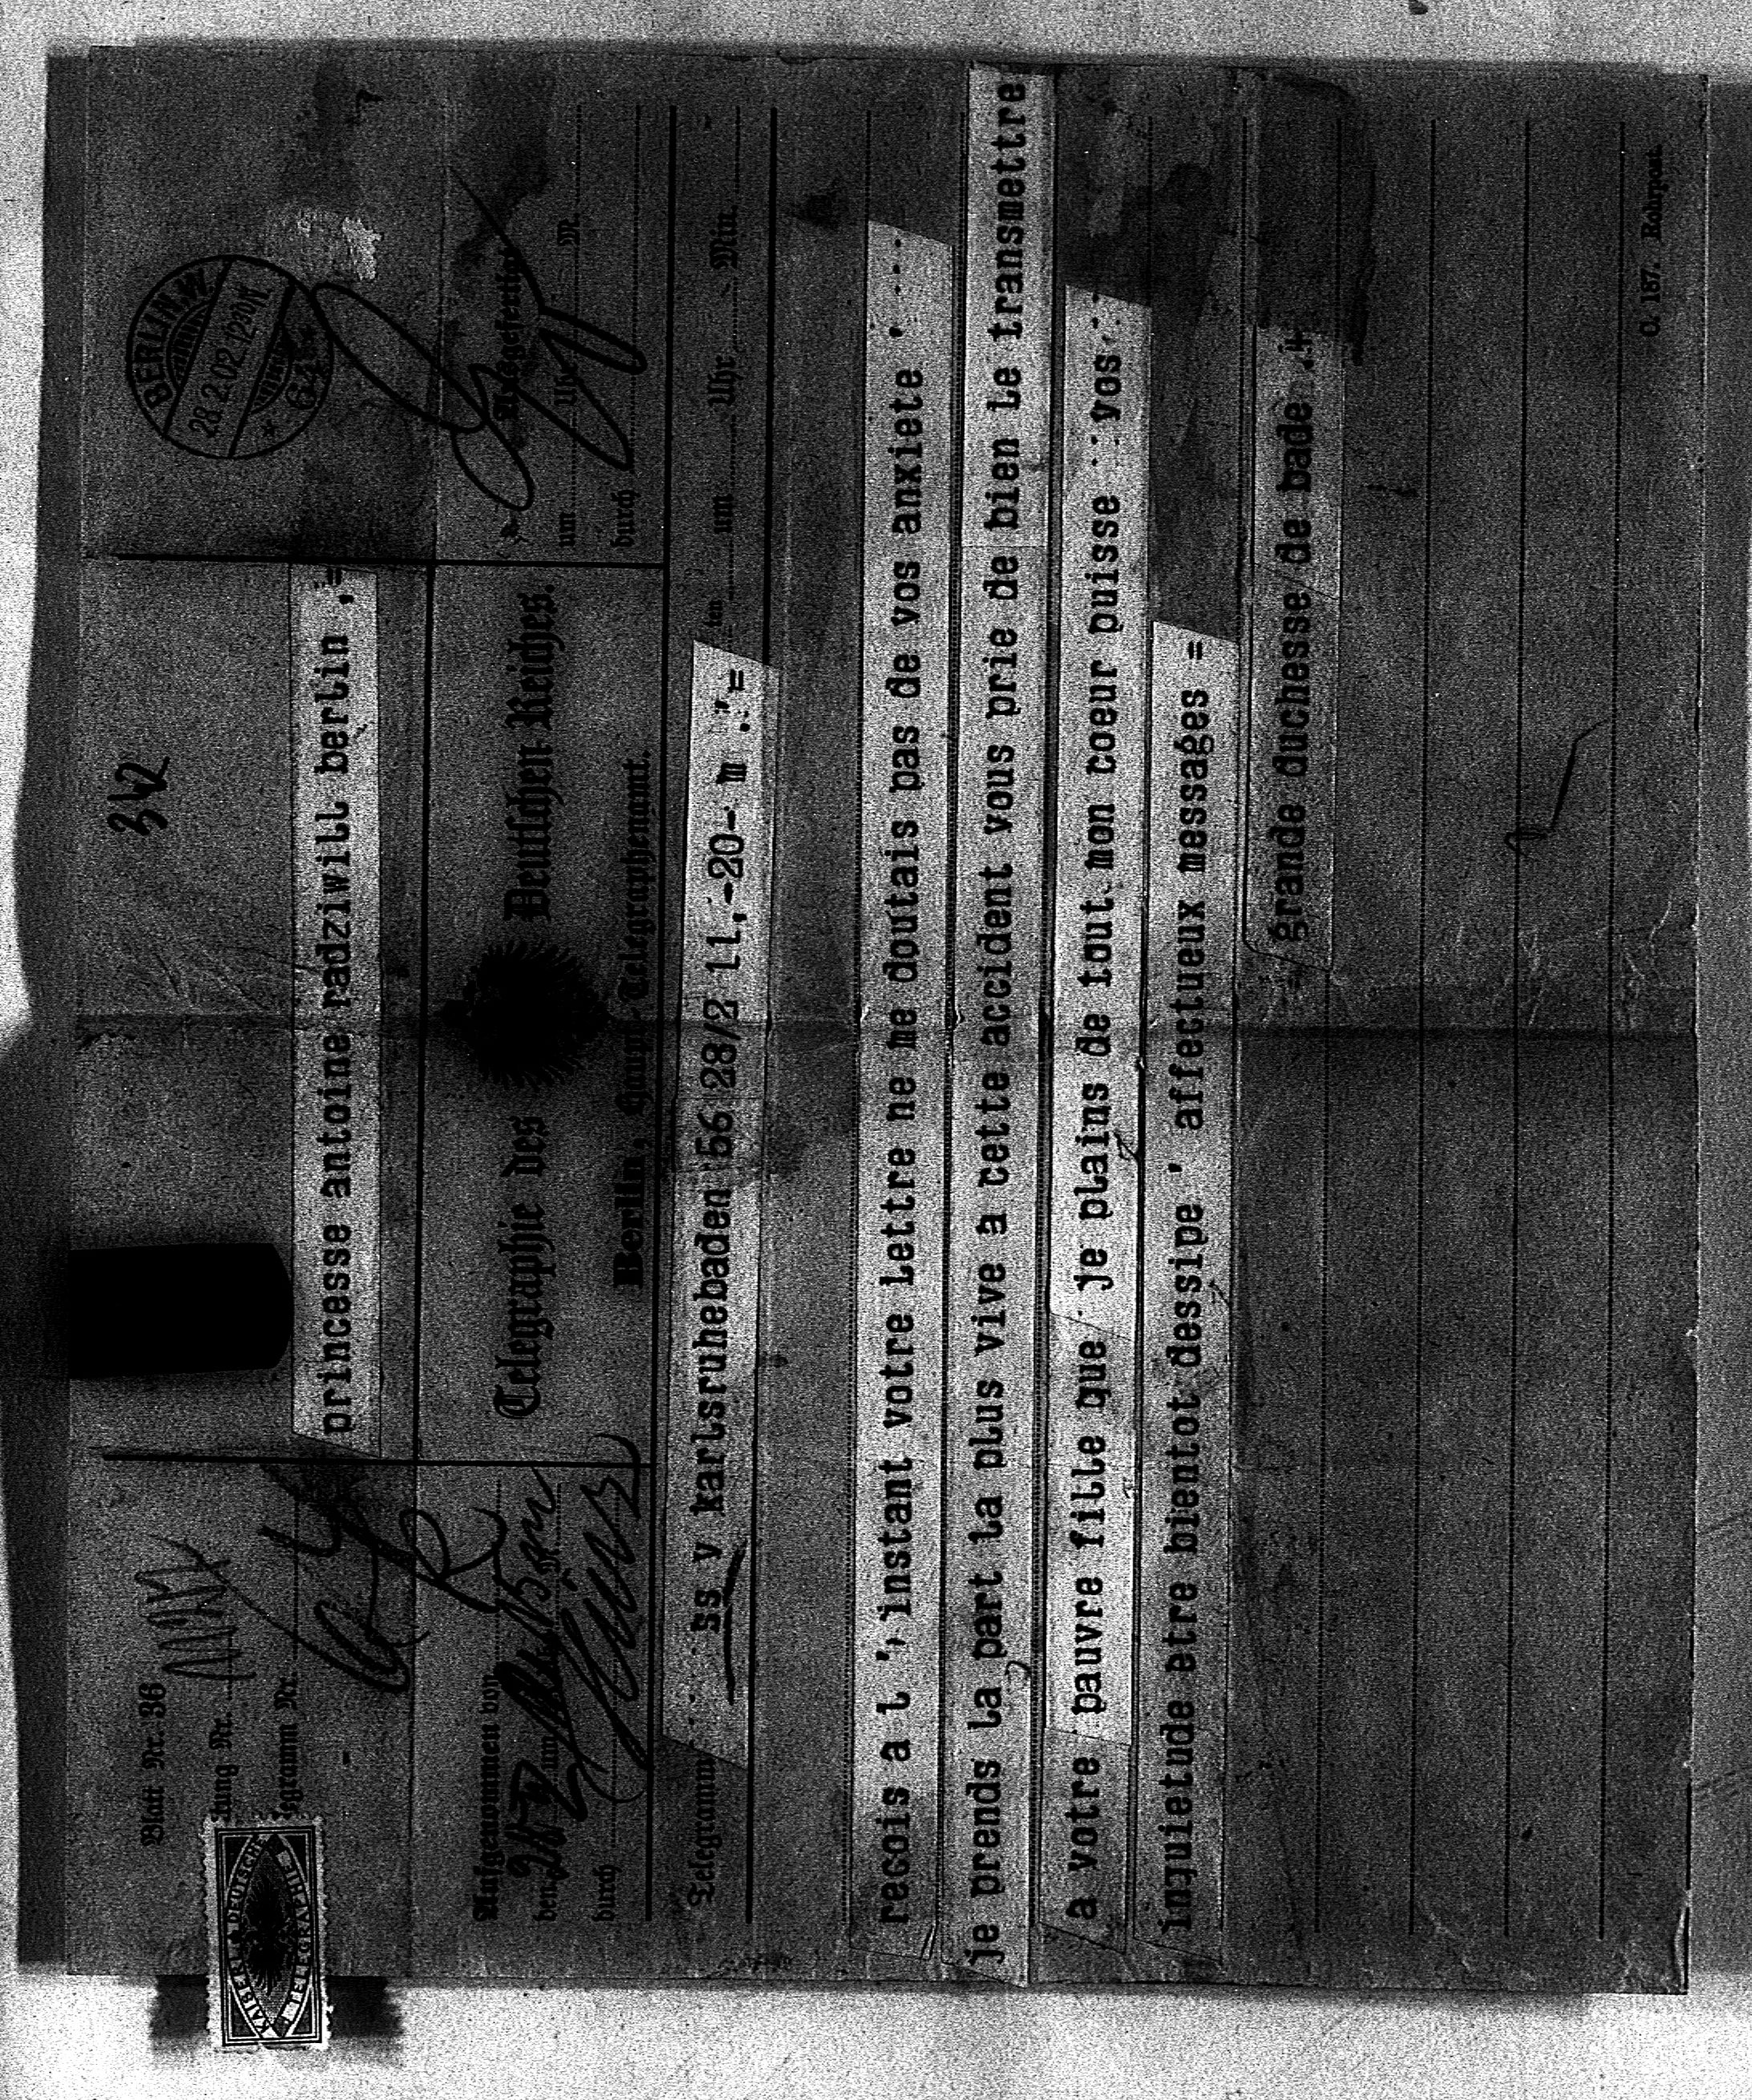 342
BERLIN.W.
28.2.02.12 30N
64 r.
Blatt Nr. 36
Leitung Nr.
Telegramm Nr.
KAISERL. DEUTSCHE
TELEGRAPHIE
princesse antoine radziwill berlin .=
Aufgenommen von
den um
durch
Telegraphie des Deutschen Reiches.
Berlin, Haupt-Telegraphenamt.
Ausgefertigt
um Uhr M.
durch
Telegramm ss v karlsruhebaden 56 28/2 11.-20- m .".=
ten um Uhr Min.
recois a l ', instant votre lettre ne me doutais pas de vos anxiete ' . . .
je prends la part la plus vive a cette accident vous prie de bien le transmettre
a votre pauvre fille que je plains de tout mon coeur puisse vos
inquietude etre bientot dessipe ' affectueux messages =
grande duchesse/de bade .+
C. 187. Rohrpost.